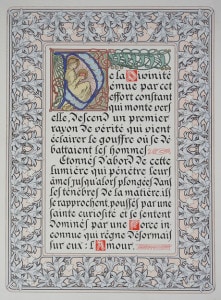 De la Divinité
émue par cet
effort constant
qui monte vers
elle, descend un premier
rayon de vérité qui vient
éclairer le gouffre où se dé-
battaient les hommes.
Etonnés d'abord de cette
lumière qui pénètre leurs
âmes jusqu'alors plongées dans
les ténèbres de la matière, ils
se rapprochent, poussés par une
sainte curiosité et se sentent
dominés par une Force in-
connue qui règne désormais
sur eux : l'Amour.